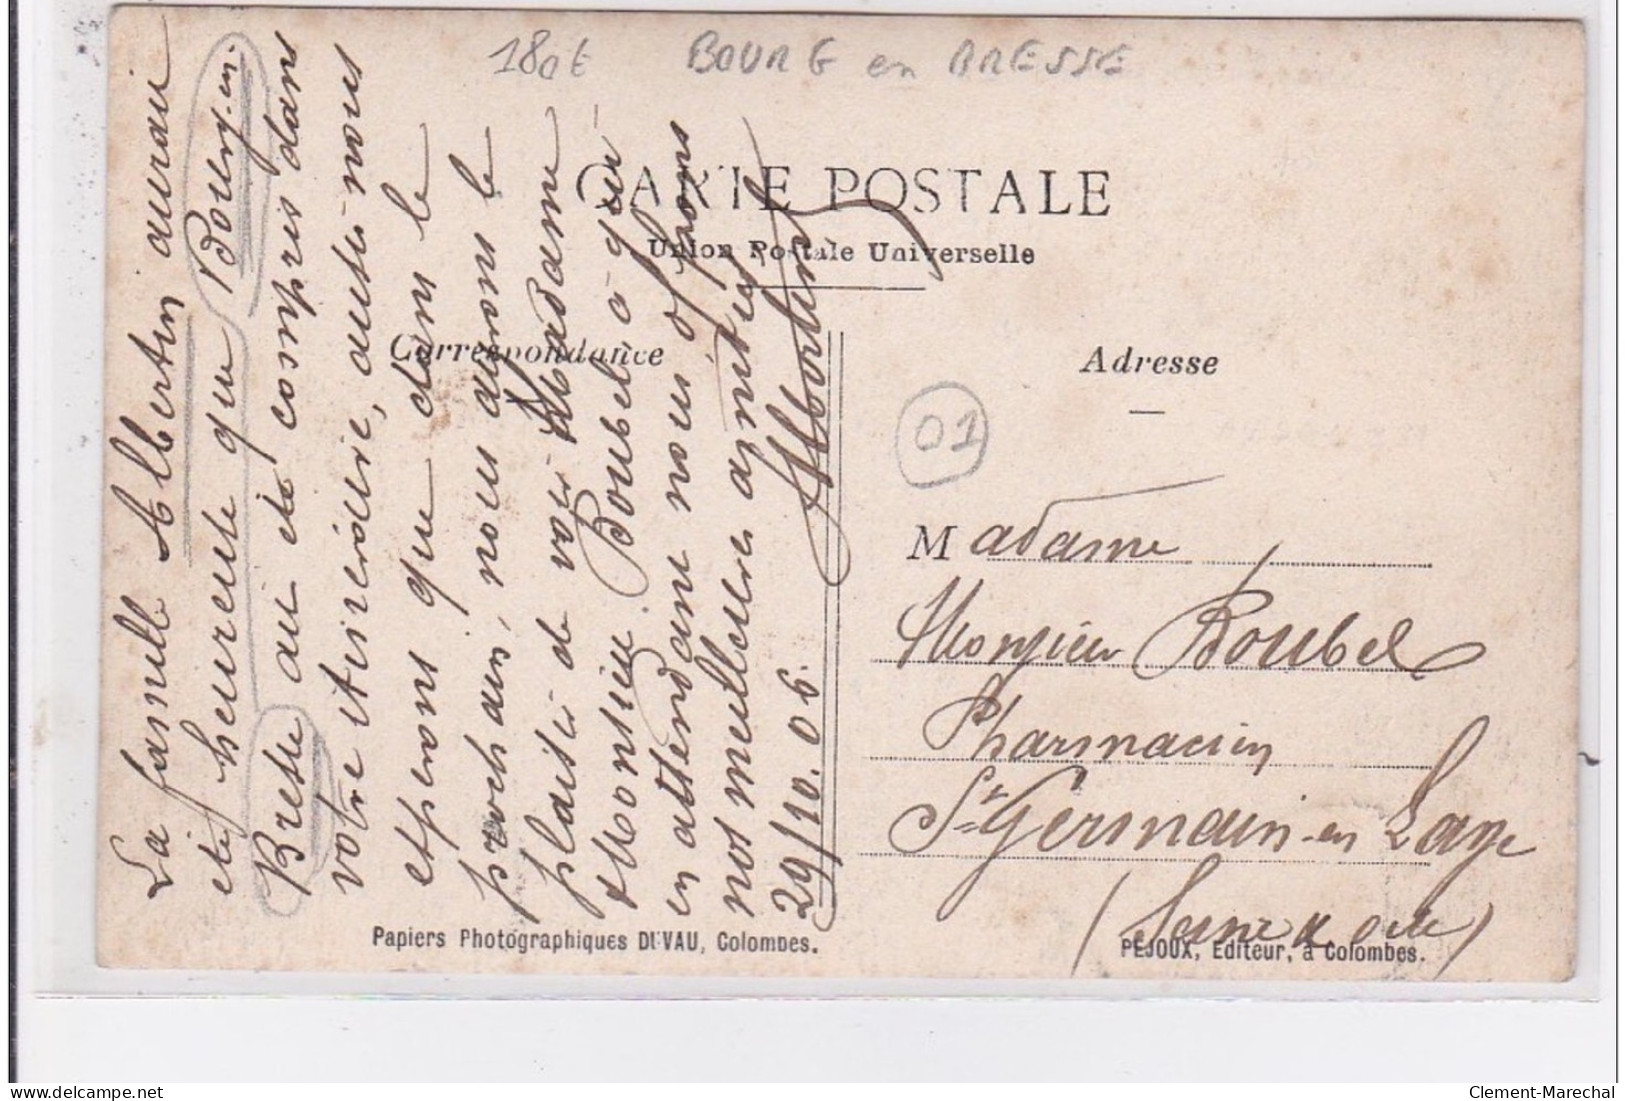 180€ BOURG en BRESSE
CARTE POSTALE
Union Postale Universelle
Correspondance
Adresse
01
La famille Albertin aurait
été heureuse que Bourg-en-
Bresse ait été compris dans
votre itinéraire, aussi nous
espérons que dans le
prochain, nous aurons le
plaisir de voir Madame
Monsieur Boubel à qui
en attendant nous offrons
nos meilleures amitiés
29/10.06. Albertin
Madame
Monsieur Boubel
Pharmacien
St Germain-en Laye
(Seine & Oise)
Papiers Photographiques DUVAU, Colombes.
PÉJOUX, Editeur, à Colombes.
Clement-Marechal
delcampe.net